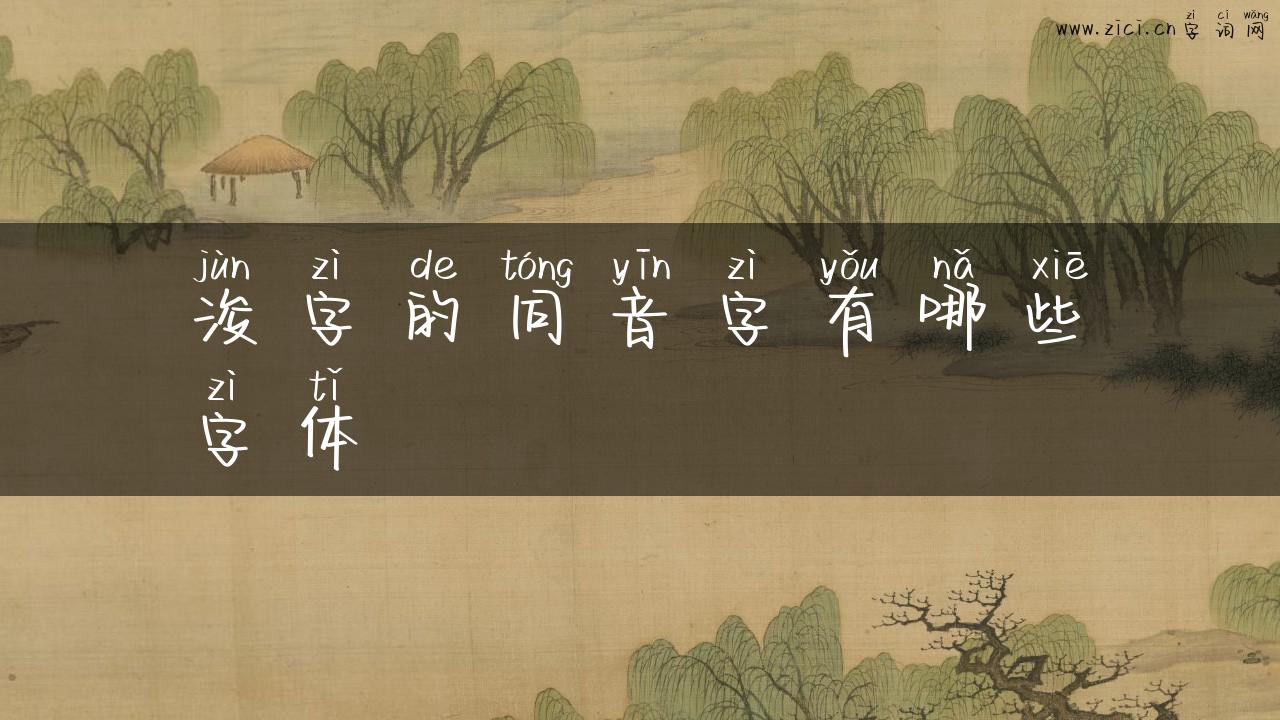 zì cí wǎng
www.zici.cn字词网
jùn zì de tóng yīn zì yǒu nǎ xiē
浚字的同音字有哪些
zì tǐ
字体